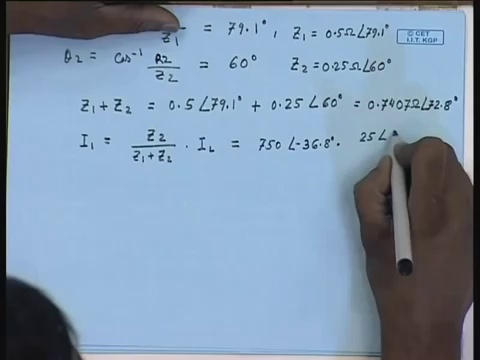 Z₁ = 79.1°, Z₁ = 0.5Ω∠79.1°
© CET I.I.T. KGP
θ₂ = cos⁻¹ R2/Z₂ = 60° Z₂ = 0.25Ω∠60°
Z₁ + Z₂ = 0.5∠79.1° + 0.25∠60° = 0.7407Ω∠72.8°
I₁ = Z₂/(Z₁+Z₂) · I_L = 750∠-36.8°. 25∠